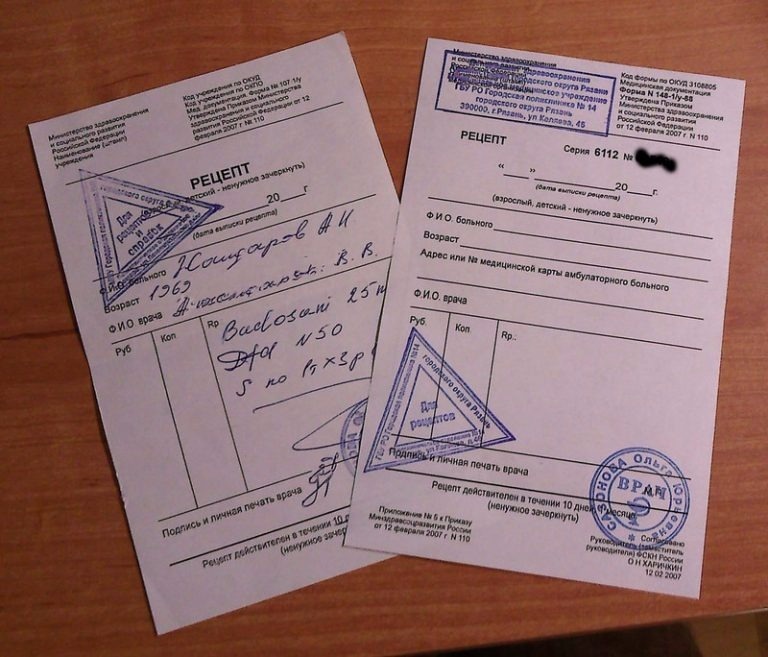 Министерство здравоохранения
и социального развития
Российской Федерации
Наименование (штамп)
учреждения
Код учреждения по ОКУД
Код учреждения по ОКПО
Мед. документация. форма № 107-1/у
Утверждена Приказом Министерства
здравоохранения и социального
развития Российской Федерации от 12
февраля 2007 г. № 110
РЕЦЕПТ
детский - ненужное зачеркнуть)
20 г.
(дата выписки рецепта)
Для
рецептов
и
справок
Ф.И.О. больного
Возраст 1969
Ф.И.О. врача В. В.
Руб Коп Rp
25
N50
S по 1т х 3р
Подпись и личная печать врача
Рецепт действителен в течении 10
(ненужное зачерк
Министерство здравоохранения
и социального развития
Российской Федерации
ГБУ РО Городская поликлиника № 14
городского округа Рязани
390000, г.Рязань, ул.Каляева, 45
Код формы по ОКУД 3108805
Медицинская документация
Форма N 148-1/у-88
Утверждена Приказом
Министерства здравоохранения
и социального развития
Российской Федерации
от 12 февраля 2007 г. N 110
РЕЦЕПТ
Серия 6112 №
" " 20 г.
(дата выписки рецепта)
(взрослый, детский - ненужное зачеркнуть)
Ф.И.О. больного
Возраст
Адрес или № медицинской карты амбулаторного больного
Ф.И.О. врача
Руб. Коп. Rp.:
ГБУ РО Городская поликлиника №14
городского округа Рязань
Для
рецептов
Подпись и личная печать врача
САФРОНОВА Ольга Юрьевна
ВРАЧ
Рецепт действителен в течении 10 дней,
(ненужное зачеркнуть)
Приложение № 5 к Приказу
Минздравсоцразвития России
от 12 февраля 2007 г. N 110
Согласовано
Руководитель (заместитель
руководителя) ФСКН России
О Н ХАРИЧКИН
12 02 2007